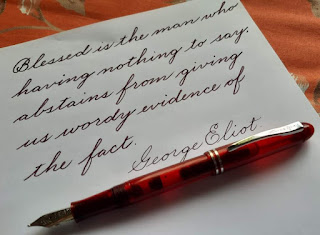 Blessed is the man who
having nothing to say,
abstains from giving
us wordy evidence of
the fact.
George Eliot